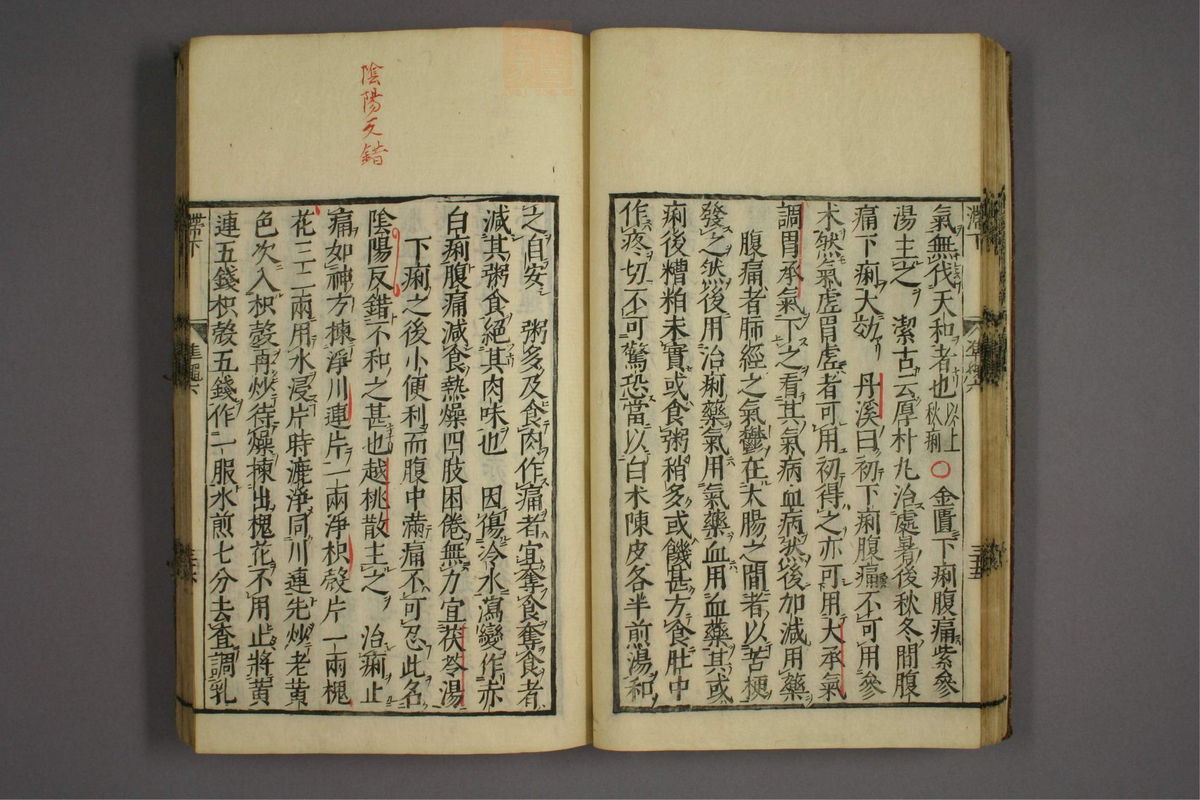 滯下
氣無伐天和者也以上秋痢○金匱下痢腹痛紫參
湯主之 潔古云厚朴丸治處暑後秋冬間腹
痛下痢大効 丹溪曰初下痢腹痛不可用參
术然氣虛胃虛者可用初得之亦可用大承氣
調胃承氣下之看其氣病血病然後加減用藥
腹痛者肺經之氣鬱在大腸之間者以苦梗
發之然後用治痢藥氣用氣藥血用血藥其或
痢後糟粕未實或食粥稍多或饑甚方食肚中
作疼切不可驚恐當以白术陳皮各半煎湯和
陰陽反錯
之自安 粥多及食肉作痛者宜奪食奪食者
減其粥食絕其肉味也 因傷冷水瀉變作赤
白痢腹痛減食熱燥四肢困倦無力宜茯苓湯
下痢之後小便利而腹中滿痛不可忍此名
陰陽反錯不和之甚也越桃散主之 治痢止
痛如神方揀淨川連片一兩淨枳殼片一兩槐
花三二兩用水浸片時漉淨同川連先炒老黃
色次入枳殼再炒待燥揀出槐花不用止將黃
連五錢枳殼五錢作一服水煎七分去査調乳
滯下
準繩六